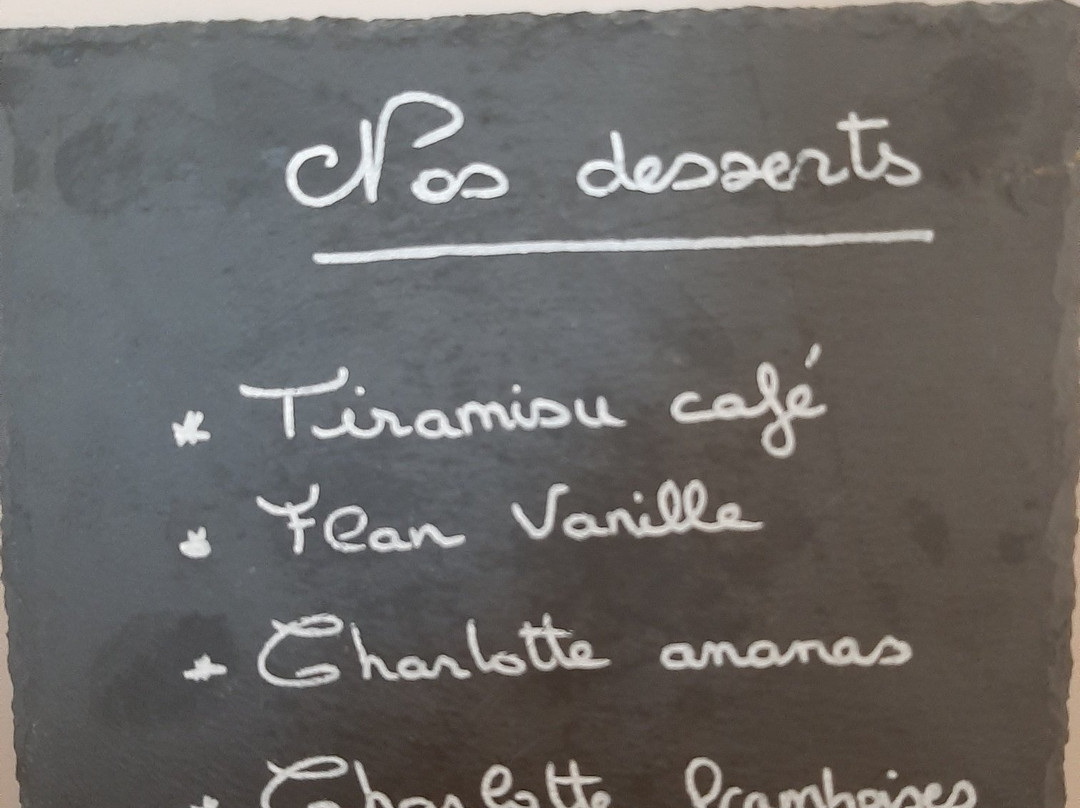 Nos desserts
* Tiramisu café
* Flan Vanille
* Charlotte ananas
* Charlotte framboises